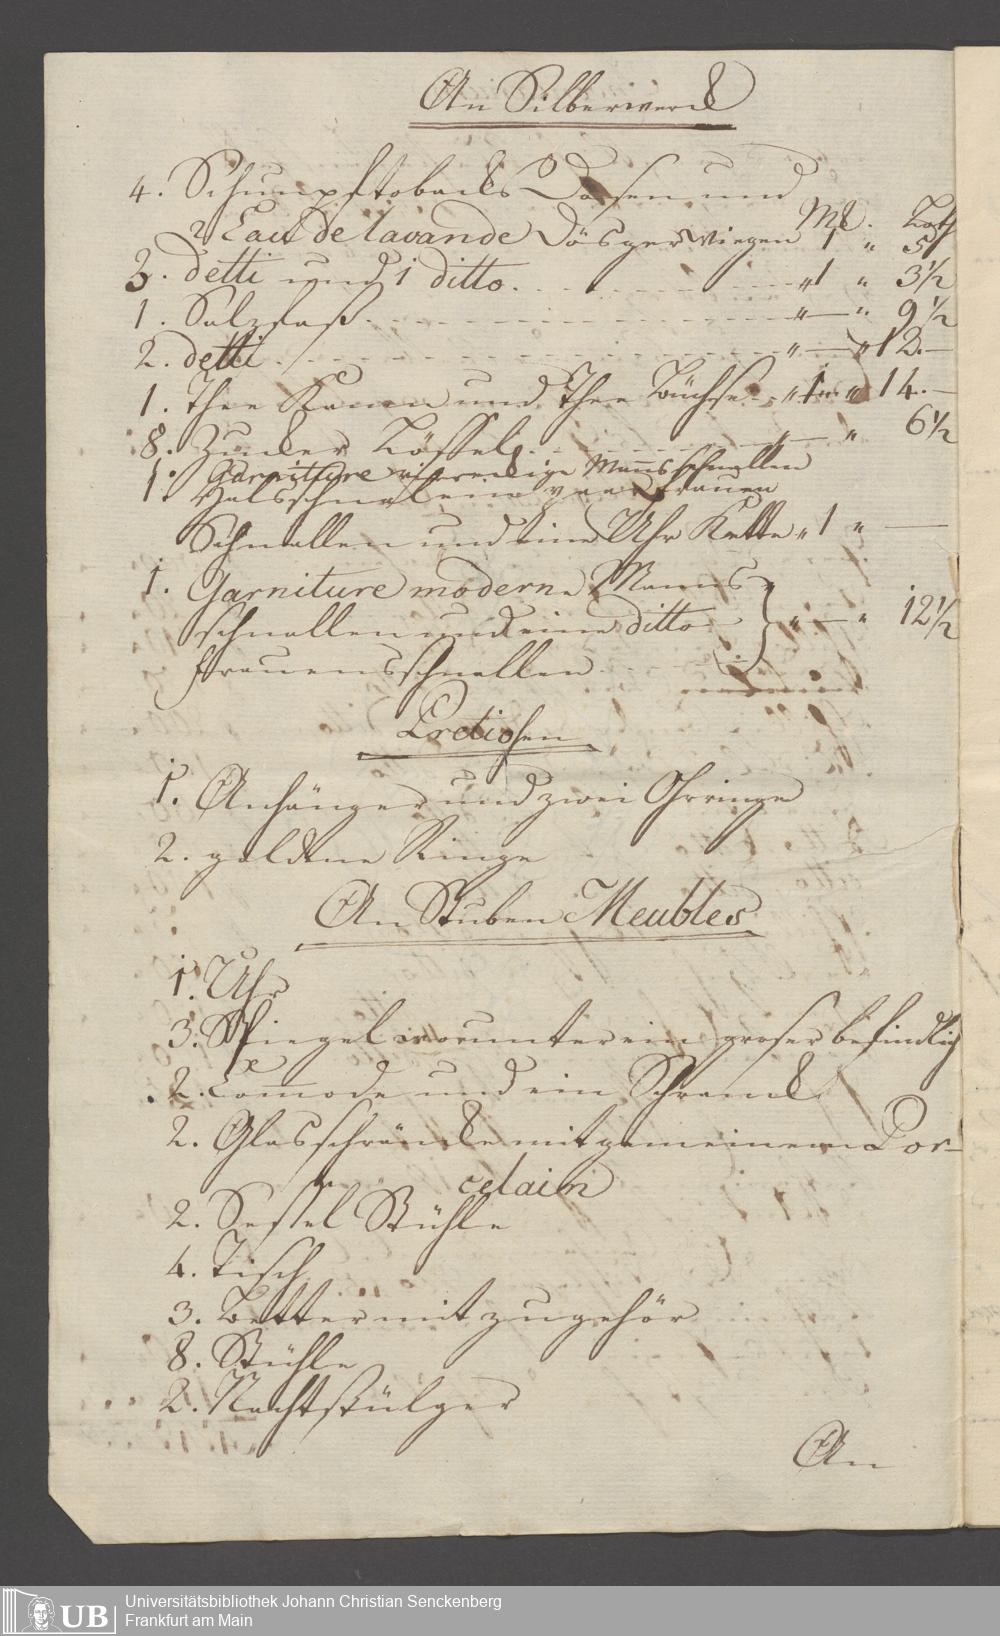 An Silberwerck
4. Schnupftobacks Dosen und
Mk. Loth
2 Eau de lavande Dösger wiegen 1 " 5
3. detti und 1 ditto. " 1 " 3½
1. Salzfaß " — " 9½
2. detti " — " 12.—
1. Thee Kann und Thee Büchse " 1 " 14.—
8. Zucker Löffel " — " 6½
1. Garniture Mannsschnallen
Halsschnallen paar Frauen
Schnallen und eine Uhr Kette " 1 " —
1. Garniture moderne Manns
schnallen und eine ditto " — " 12½
frauensschnallen
Pretiosen
1. Anhänger und zwei Ohrringe
2. goldene Ringe
An Stuben Meubles
1. Uhr
3. Spiegel worunter ein groser befindlich
2. Commode und ein Schranck
2. Glasschräncke mit gemeinem Por-
celain
2. Sessel Stühle
4. Tisch
3. Better mit zugehör
8. Stühle
2. Nachtstülger
An
UB Universitätsbibliothek Johann Christian Senckenberg
Frankfurt am Main